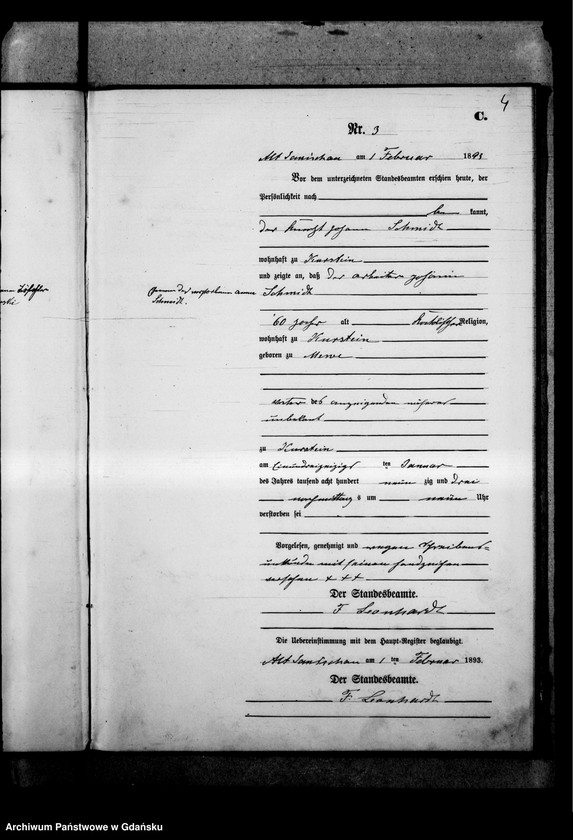 4
C.
Nr. 3
Alt Janischau am 1 Februar 1893
Vor dem unterzeichneten Standesbeamten erschien heute, der
Persönlichkeit nach
be kannt,
der Knecht Johann Schmidt
wohnhaft zu Kurstein
und zeigte an, daß der Arbeiter Johann
Schmidt
60 Jahr alt Katolischer Religion,
wohnhaft zu Kurstein
geboren zu Mewe
Vater des anzeigenden näheres
unbekant
zu Kurstein
am Einunddreizigst ten Januar
des Jahres tausend acht hundert neun zig und drei
nachmittag s um neun Uhr
verstorben sei
Vorgelesen, genehmigt und wegen Schreibens=
unkunde mit seinen Handzeichen
versehen + + +
Der Standesbeamte.
F Leonhardt
Die Uebereinstimmung mit dem Haupt-Register beglaubigt.
Alt Janischau am 1 ten Februar 1893.
Der Standesbeamte.
F. Leonhardt
der verstorbenen
Schmidt.
Archiwum Państwowe w Gdańsku